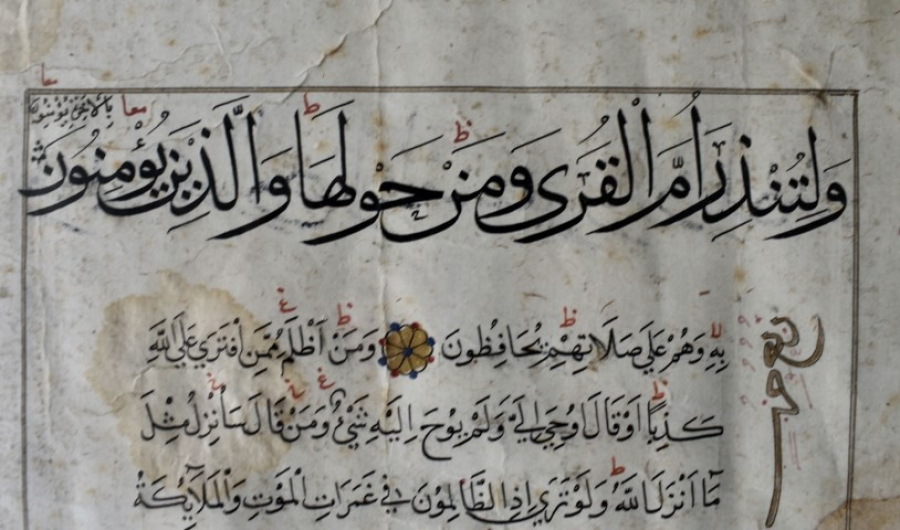 وَلِتُنْذِرَ اُمَّ الْقُرَى وَمَنْ حَوْلَهَا وَالَّذِينَ يُؤْمِنُونَ
بِالْاٰخِرَةِ يُؤْمِنُونَ
بِهِ وَهُمْ عَلَى صَلَاتِهِمْ يُحَافِظُونَ وَمَنْ اَظْلَمُ مِمَّنِ افْتَرَى عَلَى اللَّهِ
كَذِبًا اَوْ قَالَ اُوحِيَ اِلَيَّ وَلَمْ يُوحَ اِلَيْهِ شَيْئٌ وَمَنْ قَالَ سَاُنْزِلُ مِثْلَ
مَا اَنْزَلَ اللَّهُ وَلَوْ تَرَى اِذِ الظَّالِمُونَ فِي غَمَرَاتِ الْمَوْتِ وَالْمَلَائِكَةُ